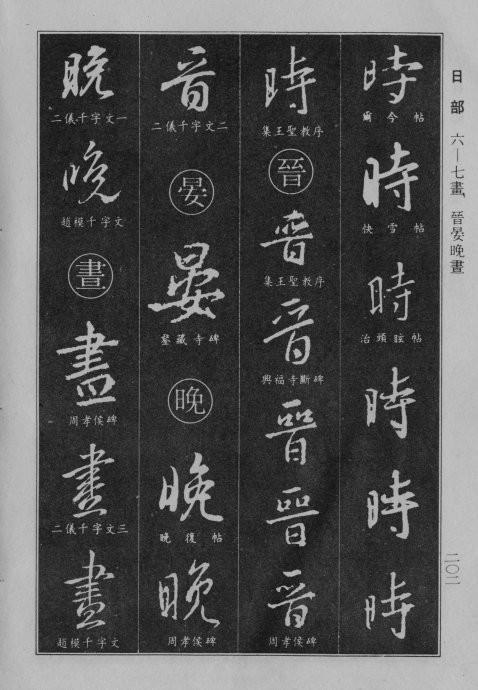 日部 六—七畫、晉晏晚晝
二〇二
時
爾今帖
時
快雪帖
時
治頭眩帖
時
時
時
時
集王聖教序
晉
晉
集王聖教序
晉
興福寺斷碑
晉
晉
晉
周孝侯碑
晉
二儀千字文二
晏
晏
鑒藏寺碑
晚
晚
晚復帖
晚
周孝侯碑
晚
二儀千字文一
晚
趙模千字文
晝
晝
周孝侯碑
晝
二儀千字文三
晝
趙模千字文